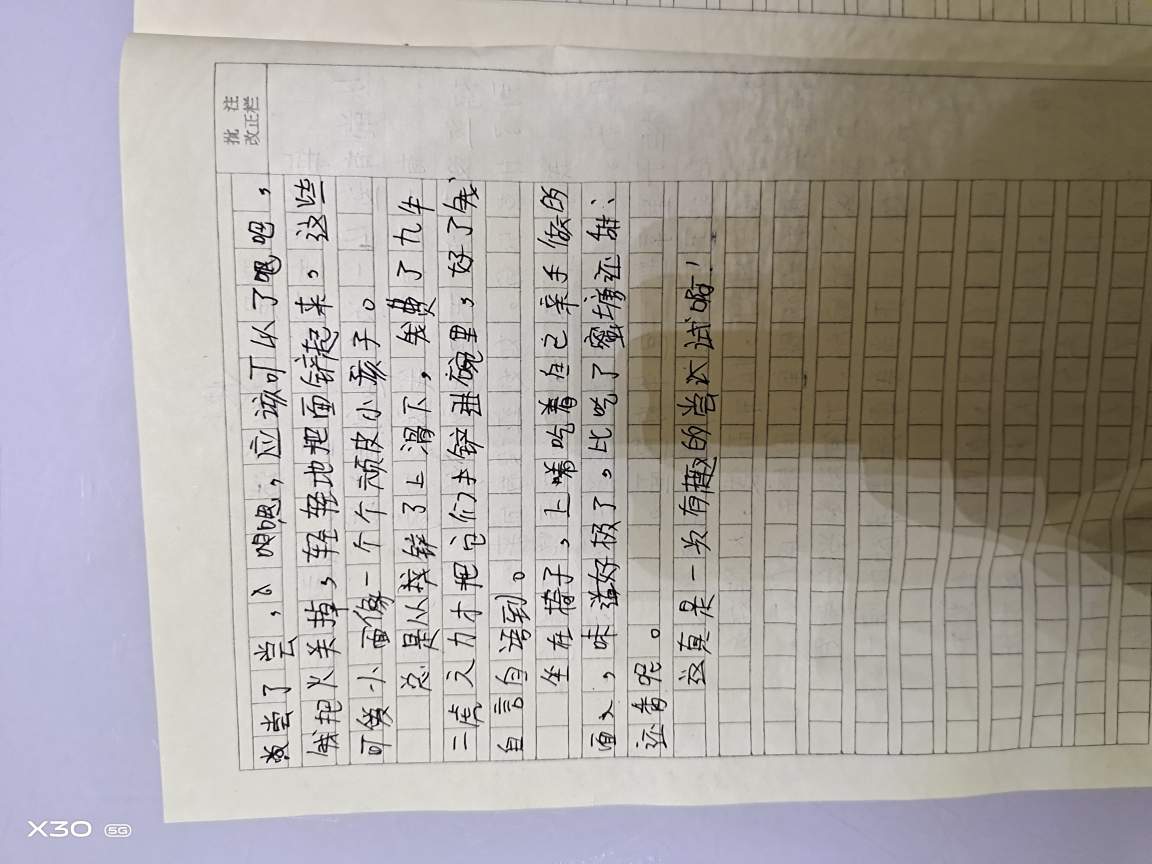 批 注
改正栏
尝了尝,嗯,应该可以了吧,
我把火关掉,轻轻地把面铲起来,这些
可像小面像一个个顽皮小孩子。
总是从我铲了上滑下,我费了九牛
二虎之力才把它们才铲进碗里,好了我
自言自语到。
坐在椅子,上嘴吃着自己亲手做的
面人,味道好极了,比吃了蜜塘还
还香呢。
这真是一次有趣的尝试啊!
X30 5G